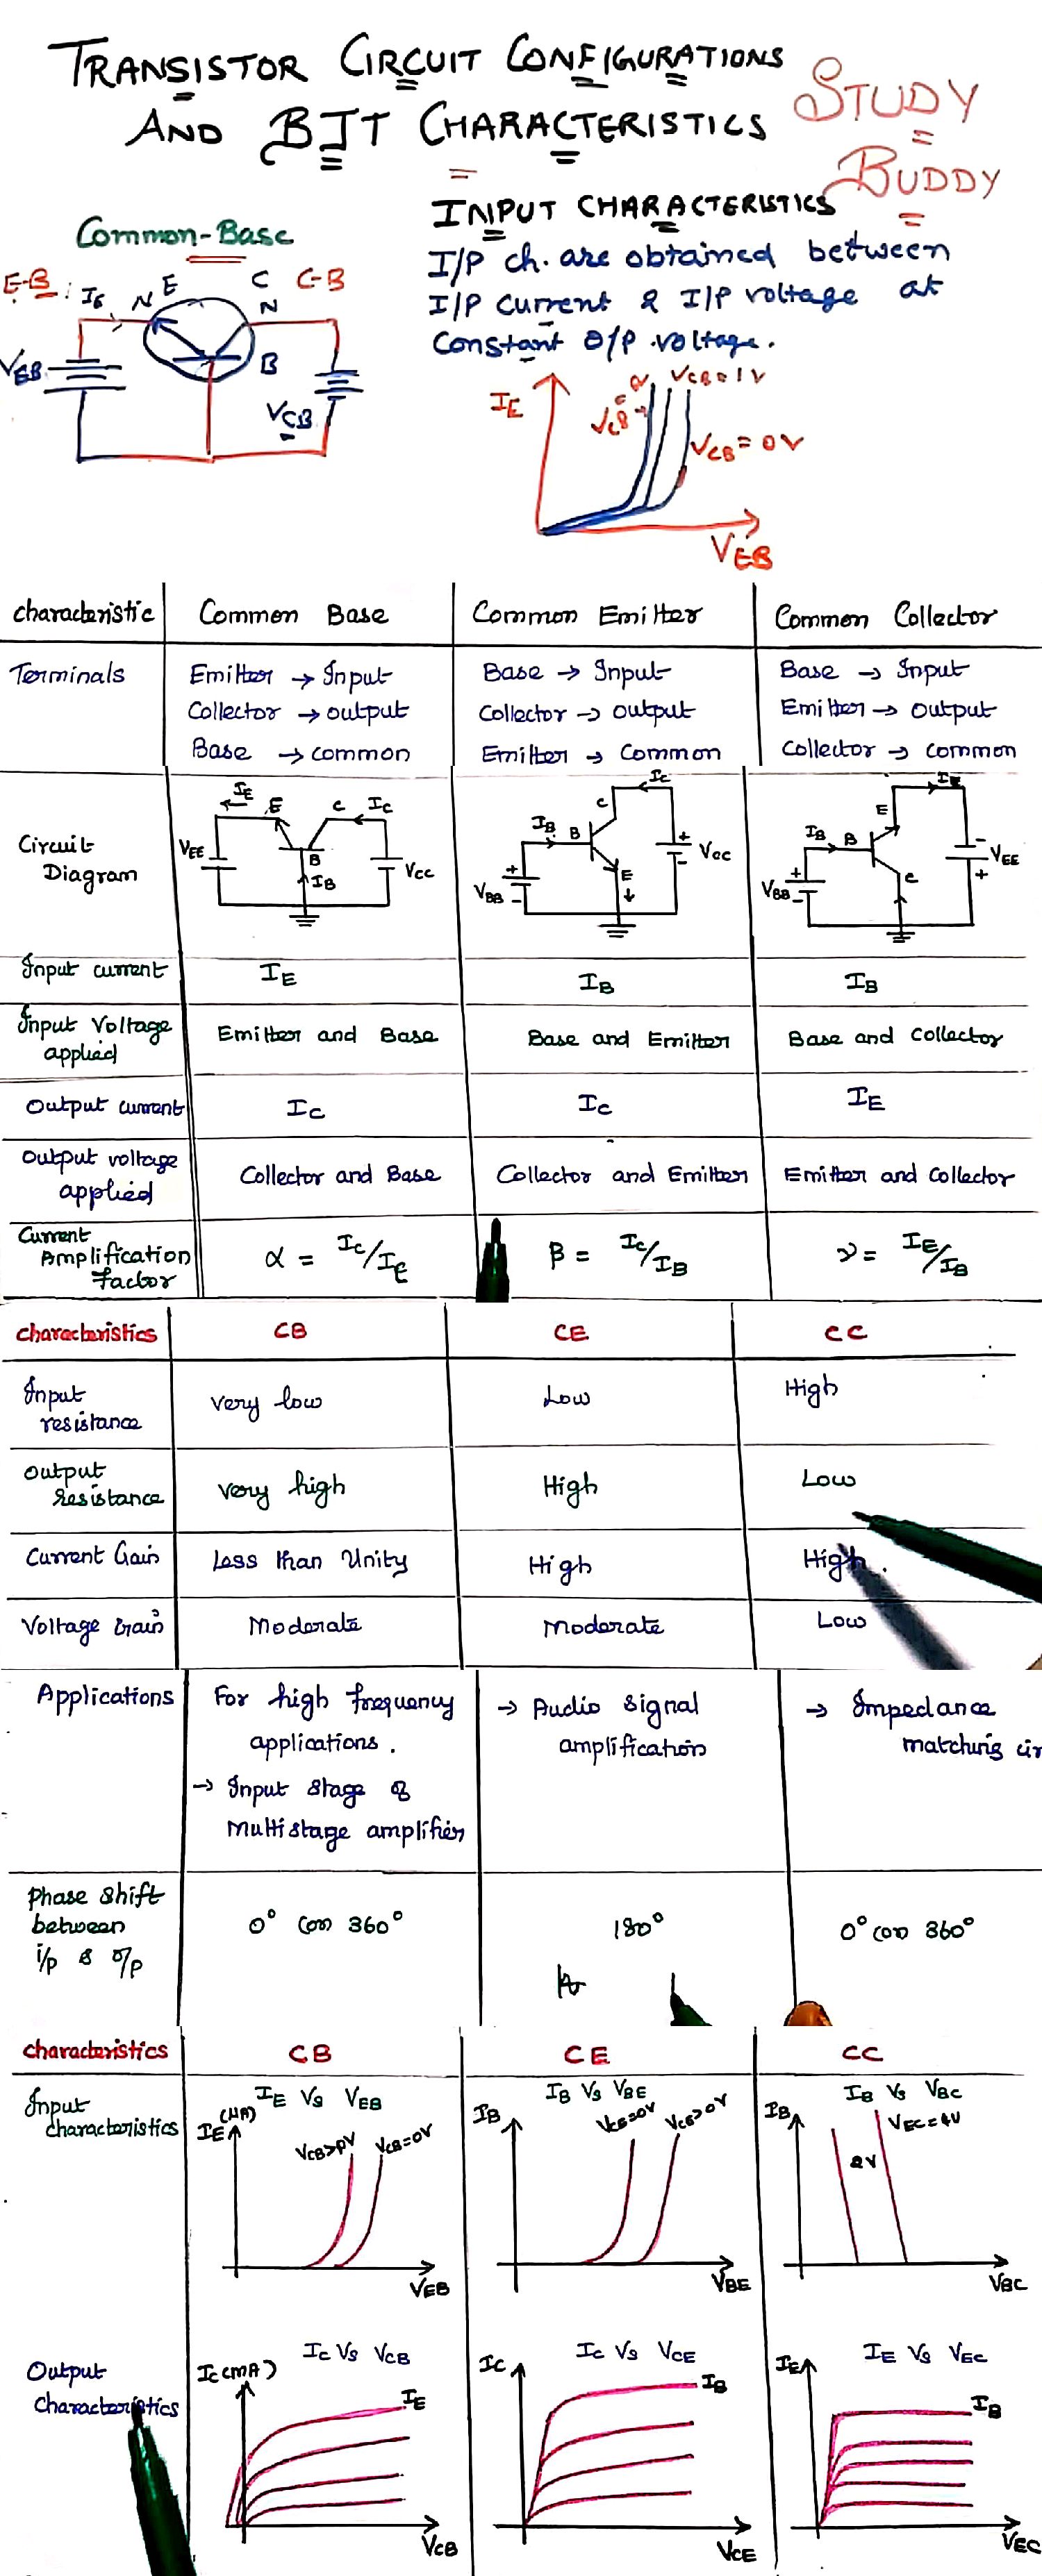 TRANSISTOR CIRCUIT CONFIGURATIONS
AND BJT CHARACTERISTICS
STUDY
BUDDY
Common-Base
E-B :
IE
N
E
C
C-B
N
B
VEB
VCB
INPUT CHARACTERISTICS
I/P ch. are obtained between
I/P current & I/P voltage at
Constant O/P voltage.
IE
VCB = 1V
VCB = 0V
VEB
Characteristic
Common Base
Common Emitter
Common Collector
Terminals
Emitter → Input
Collector → output
Base → common
Base → Input
Collector → output
Emitter → Common
Base → Input
Emitter → Output
Collector → common
Circuit
Diagram
IE
E
C
IC
VEE
B
IB
VCC
IC
C
IB
B
E
VBB
VCC
IE
E
IB
B
C
VBB
VEE
Input current
IE
IB
IB
Input Voltage
applied
Emitter and Base
Base and Emitter
Base and Collector
Output current
IC
IC
IE
Output voltage
applied
Collector and Base
Collector and Emitter
Emitter and Collector
Current
Amplification
factor
α = IC/IE
β = IC/IB
γ = IE/IB
Characteristics
CB
CE
CC
Input
resistance
very low
Low
High
Output
Resistance
very high
High
Low
Current Gain
Less than Unity
High
High.
Voltage Gain
Moderate
Moderate
Low
Applications
For high frequency
applications.
→ Input stage of
Multistage amplifier
→ Audio signal
amplification
→ Impedance
matching cir
Phase shift
between
i/p & o/p
0° (or) 360°
180°
0° (or) 360°
Characteristics
CB
CE
CC
Input
characteristics
IE Vs VEB
IE (μA)
VCB>0V
VCB=0V
VEB
IB Vs VBE
IB
VCE=0V
VCE>0V
VBE
IB Vs VBC
IB
VEC=4V
2V
VBC
Output
Characteristics
IC Vs VCB
IC (mA)
IE
VCB
IC Vs VCE
IC
IB
VCE
IE Vs VEC
IE
IB
VEC